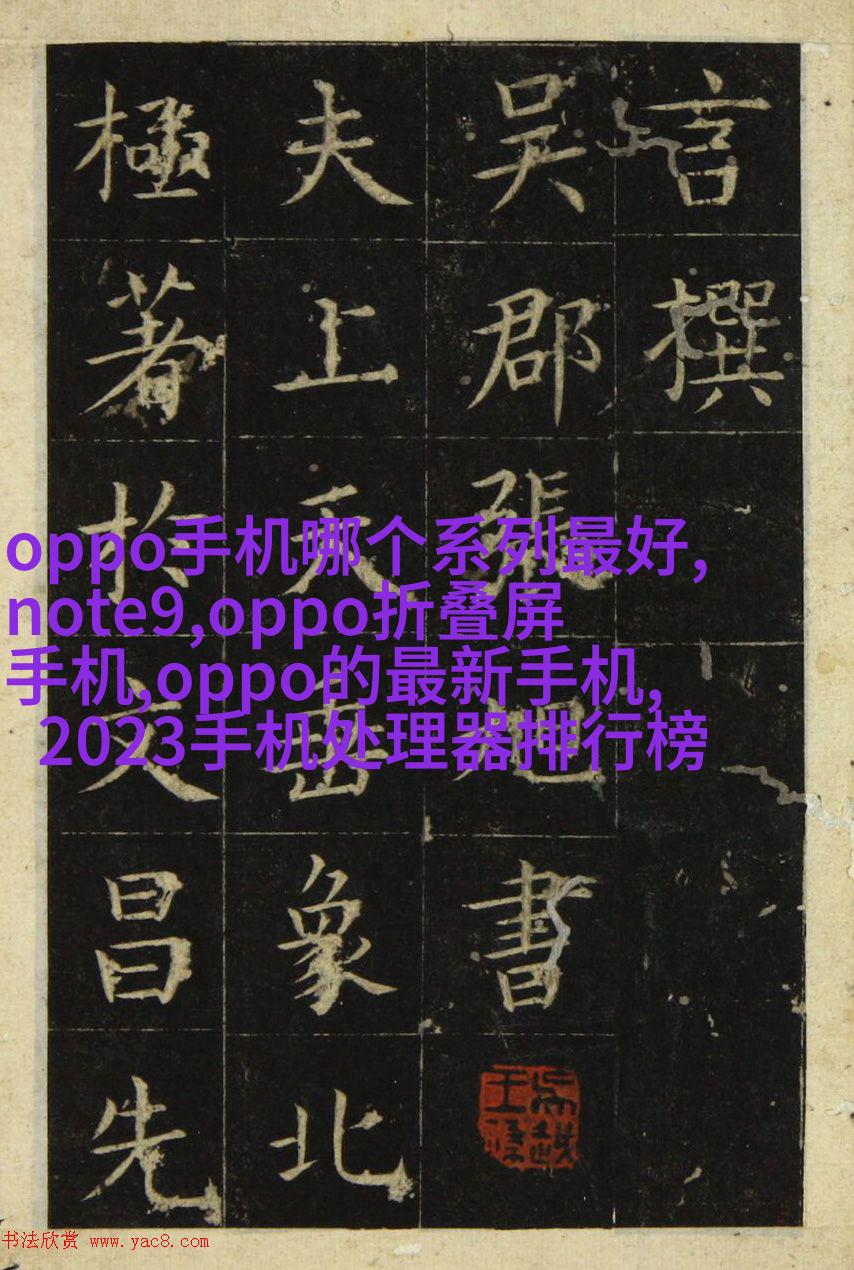 言撰
吴郡張旭書
夫上天垂象北
極著於文昌先
oppo手机哪个系列最好,
note9,oppo折叠屏
手机,oppo的最新手机,
2023手机处理器排行榜
书法欣赏 www.yac8.com